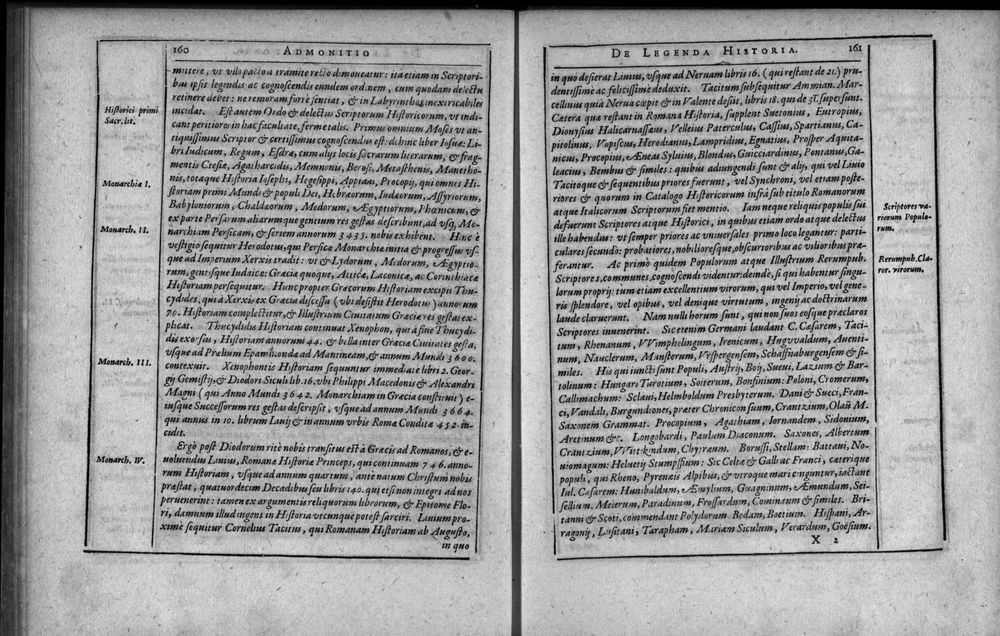 160 ADMONITIO
mittere, vt vllo pacto a tramite recto dimoueatur: ita etiam in Scriptori-
bus ipsis legendis ac cognoscendis eundem ordinem, cum quodam delectu
retinere debet: ne remoram forte sentiat, & in Labyrinthos inextricabiles
Historici primi
Sacr. lit.
incidat. Est autem Ordo & delectus Scriptorum Historicorum, vt indi-
cant peritiores in hac facultate, ferme talis. Primus omnium Moses vt an-
tiquissimus Scriptor & certissimus cognoscendus est: dehinc liber Iosuæ: Li-
bri Iudicum, Regum, Esdræ, cum alijs locis sacrarum literarum, & frag-
mentis Ctesiæ, Agatharcidis, Memnonis, Berosi, Metasthenis, Manetho-
Monarchiæ I.
nis, totaque Historia Iosephi, Hegesippi, Appiani, Procopij, qui omnes Hi-
storiam primi Mundi & populi Dei, Hebræorum, Iudæorum, Assyriorum,
Babyloniorum, Chaldæorum, Medorum, Ægyptiorum, Phœnicum, &
ex parte Persarum aliarumque gentium res gestas describunt, ad vsq, Mo-
Monarch. II.
narchiam Persicam, & seriem annorum 3435. nobis exhibent. Hinc è
vestigio sequitur Herodotus, qui Persicæ Monarchiæ initia & progressus vs-
que ad Imperium Xerxis tradit: vt & Lydorum, Medorum, Ægyptio-
rum, gentisque Iudaicæ: Græciæ quoque, Atticæ, Laconicæ, ac Corinthiacæ
Historiam persequitur. Hunc propter Græcorum Historiam excipit Thu-
cydides, qui à Xerxis ex Græcia discessu (vbi desistit Herodotus) annorum
70. Historiam complectitur, & Illustrium Ciuitatum Græciæ res gestas ex-
plicat. Thucydidis Historiam continuat Xenophon, qui à fine Thucydi-
dis exorsus, Historiam annorum 44. & bella inter Græcia Ciuitates gesta,
vsque ad Prælium Epaminondæ ad Mantineam, & annum Mundi 3600.
Monarch. III.
contexuit. Xenophontis Historiam sequuntur immediate libri 2. Geor-
gij Gemistij, & Diodori Siculi lib. 16. vbi Philippi Macedonis & Alexandri
Magni (qui Anno Mundi 3642. Monarchiam in Græcia constituit) e-
iusque Successorum res gestas descripsit, vsque ad annum Mundi 3664.
qui annus in 10. librum Liuij & in annum vrbis Romæ Conditæ 452 in-
cidit.
Ergò post Diodorum ritè nobis transitus est à Græcis ad Romanos, & e-
Monarch. IV.
uoluendus Liuius, Romanæ Historiæ Princeps, qui continuam 746. anno-
rum Historiam, vsque ad annum quartum, ante natum Christum nobis
præstat, quatuordecim Decadibus seu libris 140. qui etsi non integri ad nos
peruenerint: tamen ex argumentis reliquorum librorum, & Epitome Flo-
ri, damnum illud ingens in Historia vtcunque potest sarciri. Liuium pro-
ximè sequitur Cornelius Tacitus, qui Romanam Historiam ab Augusto,
in quo
DE LEGENDA HISTORIA. 161
in quo desierat Liuius, vsque ad Neruam libris 16. (qui restant de 21.) pru-
dentissimè ac felicissimè deduxit. Tacitum subsequitur Ammian. Mar-
cellinus quià Nerua cœpit & in Valente desiit, libris 18. qui de 31. supersunt.
Cætera quæ restant in Romana Historia, supplent Suetonius, Eutropius,
Dionysius Halicarnassæus, Velleius Paterculus, Cassius, Spartianus, Ca-
pitolinus, Vopiscus, Herodianus, Lampridius, Egnatius, Prosper Aquita-
nicus, Procopius, Æneas Syluius, Blondus, Guicciardinus, Pontanus, Ga-
leacius, Bembus & similes: quibus adiungendi sunt & alij, qui vel Liuio
Tacitoque & sequentibus priores fuerunt, vel Synchroni, vel etiam poste-
riores & quorum in Catalogo Historicorum infrà sub titulo Romanorum
Scriptores va-
riorum Populo-
rum.
atque Italicorum Scriptorum fiet mentio. Iam neque reliquis populis sui
defuerunt Scriptores atque Historici, in quibus etiam ordo atque delectus
ille habendus: vt semper priores ac vniuersales primo loco legantur: parti-
culares secundò: probatiores, nobilioresque, obscurioribus ac vilioribus præ-
Rerumpub. Cla-
ror. virorum.
ferantur. Ac primò quidem Populorum atque Illustrium Rerumpub.
Scriptores, communes, cognoscendi videntur: deinde, si qui habentur singu-
lorum proprij: tum etiam excellentium virorum, qui vel Imperio, vel gene-
ris splendore, vel opibus, vel denique virtutum, ingenij ac doctrinarum
laude claruerunt. Nam nulli horum sunt, qui non suos eosque præclaros
Scriptores inuenerint. Sic etenim Germani laudant C. Cæsarem, Taci-
tum, Rhenanum, VVimphelingum, Irenicum, Huguualdum, Auenti-
num, Nauclerum, Munsterum, Vrspergensem, Schaffnaburgensem & si-
miles. His qui iuncti sunt Populi, Austrij, Boij, Sueui, Lazium & Bar-
tolinum: Hungari Turotium, Soiterum, Bonfinium: Poloni, Cromerum,
Callimachum: Sclaui, Helmboldum Presbyterum. Dani & Sueci, Fran-
ci, Vandali, Burgundiones, præter Chronicon suum, Crantzium, Olaū M.
Saxonem Grammat. Procopium, Agathiam, Iornandem, Sidonium,
Aretinum &c. Longobardi, Paulum Diaconum. Saxones, Albertum
Crantzium, VVitikindum, Chytræum. Borussi, Stellam: Battaui, No-
uiomagum: Heluetij Stumpfium: Sic Celtæ & Galli ac Franci, cæterique
populi, qui Rheno, Pyrenæis Alpibus, & vtroque mari cinguntur, iactant
Iul. Cæsarem: Hunibaldum, Æmylium, Guaguinum, Æmundum, Seis-
sellium, Meierum, Paradinum, Frossardum, Comineum & similes. Bri-
tanni & Scoti, commendant Polydorum Bedam, Boetium. Hispani, Ar-
ragonij, Lusitani, Tarapham, Mariam Siculum, Verardum, Goesium.
X 2